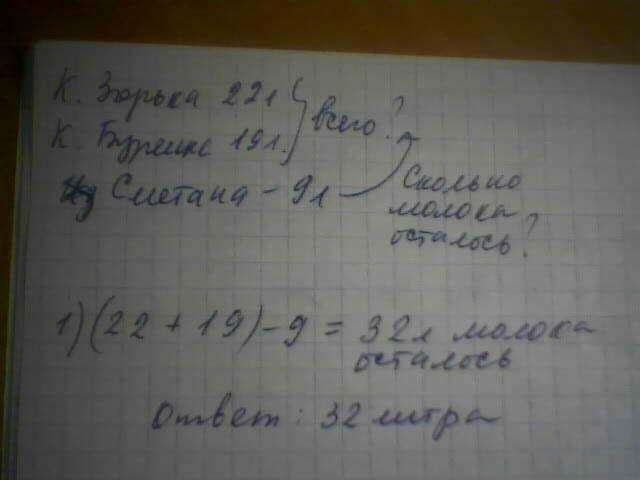 К. Зорька 22л
К. Буренка 19л. всего?
Сметана - 9л
Сколько
молока
осталось?
1) (22 + 19) - 9 = 32л молока
осталось
Ответ: 32 литра